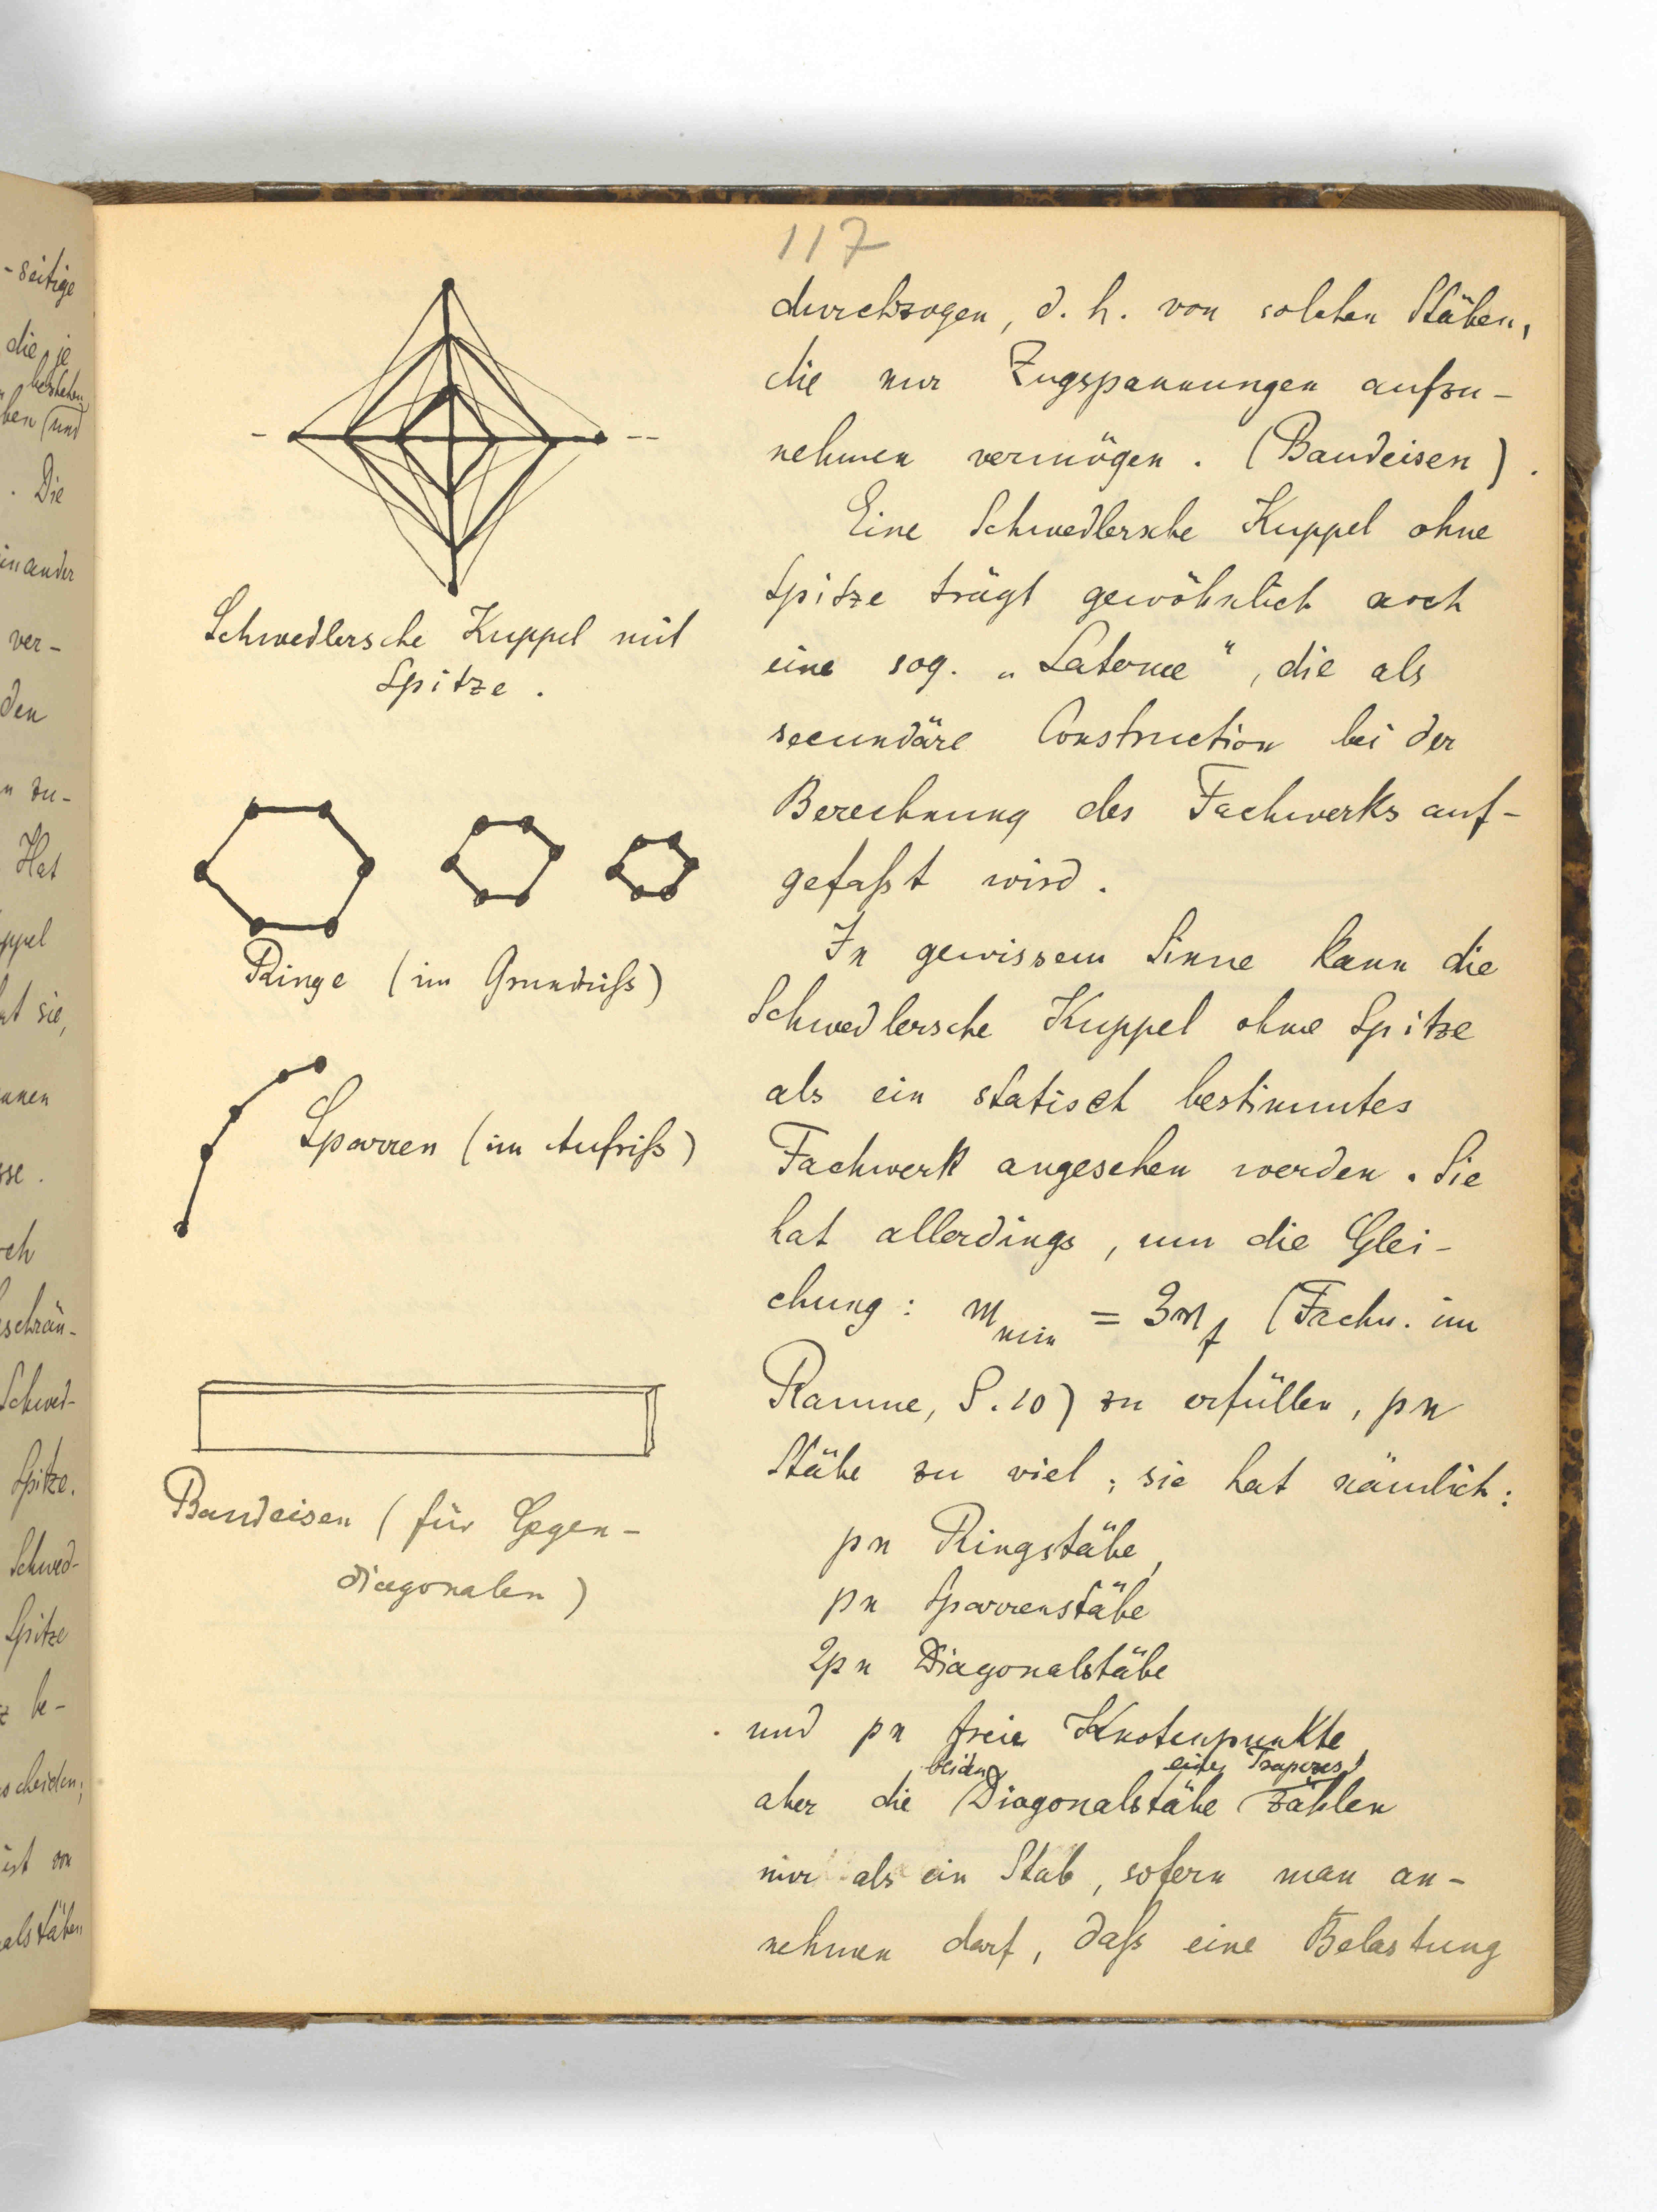 117
-seitige
die je
bestehen
ben und
. Die
einander
ver-
den
n zu-
Hat
ppel
t sie,
nnen
sse.
ch
schrän-
Schwed-
Spitze.
Schwed-
Spitze
z be-
scheiden;
ist von
alstäben
Schwedlersche Kuppel mit
Spitze.
Ringe (im Grundriß)
Sparren (im Aufriß)
Bandeisen (für Gegen-
diagonalen)
durchzogen, d. h. von solchen Stäben,
die nur Zugspannungen aufzu-
nehmen vermögen. (Bandeisen).
Eine Schwedlersche Kuppel ohne
Spitze trägt gewöhnlich noch
eine sog. „Laterne“, die als
secundäre Construction bei der
Berechnung des Fachwerks auf-
gefaßt wird.
In gewissem Sinne kann die
Schwedlersche Kuppel ohne Spitze
als ein statisch bestimmtes
Fachwerk angesehen werden. Sie
hat allerdings, um die Glei-
chung: m_min = 3n_f (Fachw. im
Raume, S. 10) zu erfüllen, pn
Stäbe zu viel; sie hat nämlich:
pn Ringstäbe,
pn Sparrenstäbe
2pn Diagonalstäbe
und pn freie Knotenpunkte,
beiden eines Trapezes
aber die Diagonalstäbe zählen
nur als ein Stab, sofern man an-
nehmen darf, daß eine Belastung